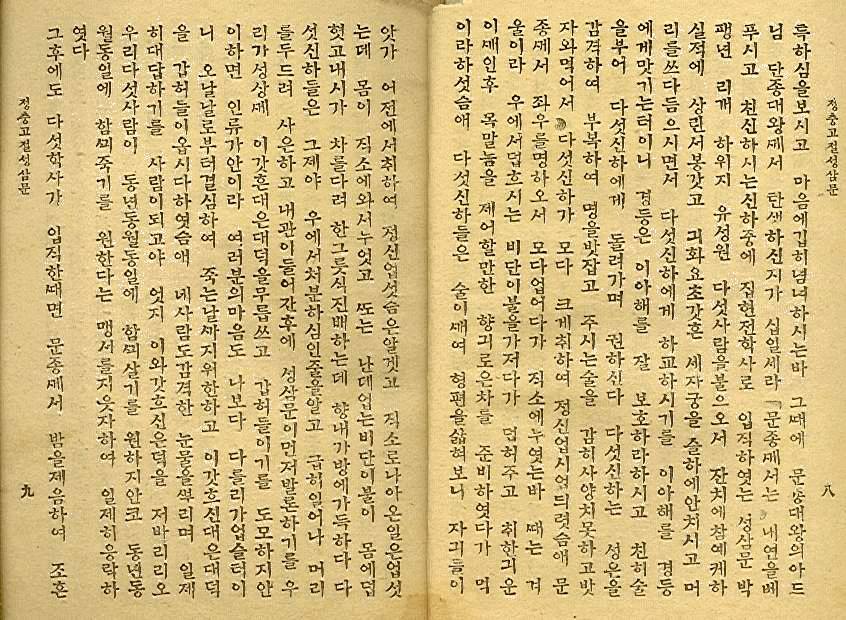 정충고절성삼문
八
록하심을보시고 마음에깁히념녀하시는바 그때에 문종대왕의아드
님 단종대왕께서 탄생하신지가 십일세라 문종께서는 내연을베
푸시고 친신하시는신하중에 집현전학사로 입직하엿는 성삼문 박
팽년 리개 하위지 유성원 다섯사람을불으오서 잔치에참예케하
실적에 상란서봉갓고 긔화요초갓흔 세자궁을 슬하에안치시고 머
리를쓰다듬으시면서 다섯신하에게 하교하시기를 이아해를 경등
에게맛기는터이니 경등은 이아해를 잘 보호하라하시고 친히술
을부어 다섯신하에게 돌려가며 권하신다 다섯신하는 성은을
감격하여 부복하여 명을밧잡고 주시는술을 감히사양치못하고밧
자와먹어서 다섯신하가 모다 크게취하여 정신업시업듸렷슴애 문
종께서 좌우를명하오서 모다업어다가 직소에누엿는바 때는 겨
울이라 우에서덥흐시는 비단이불을가저다가 덥허주고 취한긔운
이깨인후 목말늠을 제어할만한 향긔로은차를 준비하엿다가 먹
이라하섯슴애 다섯신하들은 술이깨여 형편을삷혀보니 자긔들이
앗가 어전에서취하여 정신업섯슴은알겟고 직소로나아온일은업섯
는데 몸이 직소에와서누엇고 또는 난데업는비단이불이 몸에덥
혓고내시가 차를다려 한그릇식진배하는데 향내가방에가득하다 다
섯신하들은 그제야 우에서처분하심인줄을알고 급히일어나 머리
를두드려 사은하고 내관이들어간후에 성삼문이먼저발론하기를 우
리가성상께 이갓흔대은대덕을무릅쓰고 갑허들이기를 도모하지안
이하면 인류가안이라 여러분의마음도 나보다 다를리가업슬터이
니 오날날로부터결심하여 죽는날까지위한하고 이갓흐신대은대덕
을 갑허들이옵시다하엿슴애 네사람도감격한 눈물을뿌리며 일제
히대답하기를 사람이되고야 엇지 이와갓흐신은덕을 저바리리오
우리다섯사람이 동년동월동일에 함끠살기를 원하지안코 동년동
월동일에 함끠죽기를 원한다는 맹서를지읏자하여 일제히응락하
엿다
그후에도 다섯학사가 입직한때면 문종께서 밤을제음하여 조흔
정충고절성삼문
九